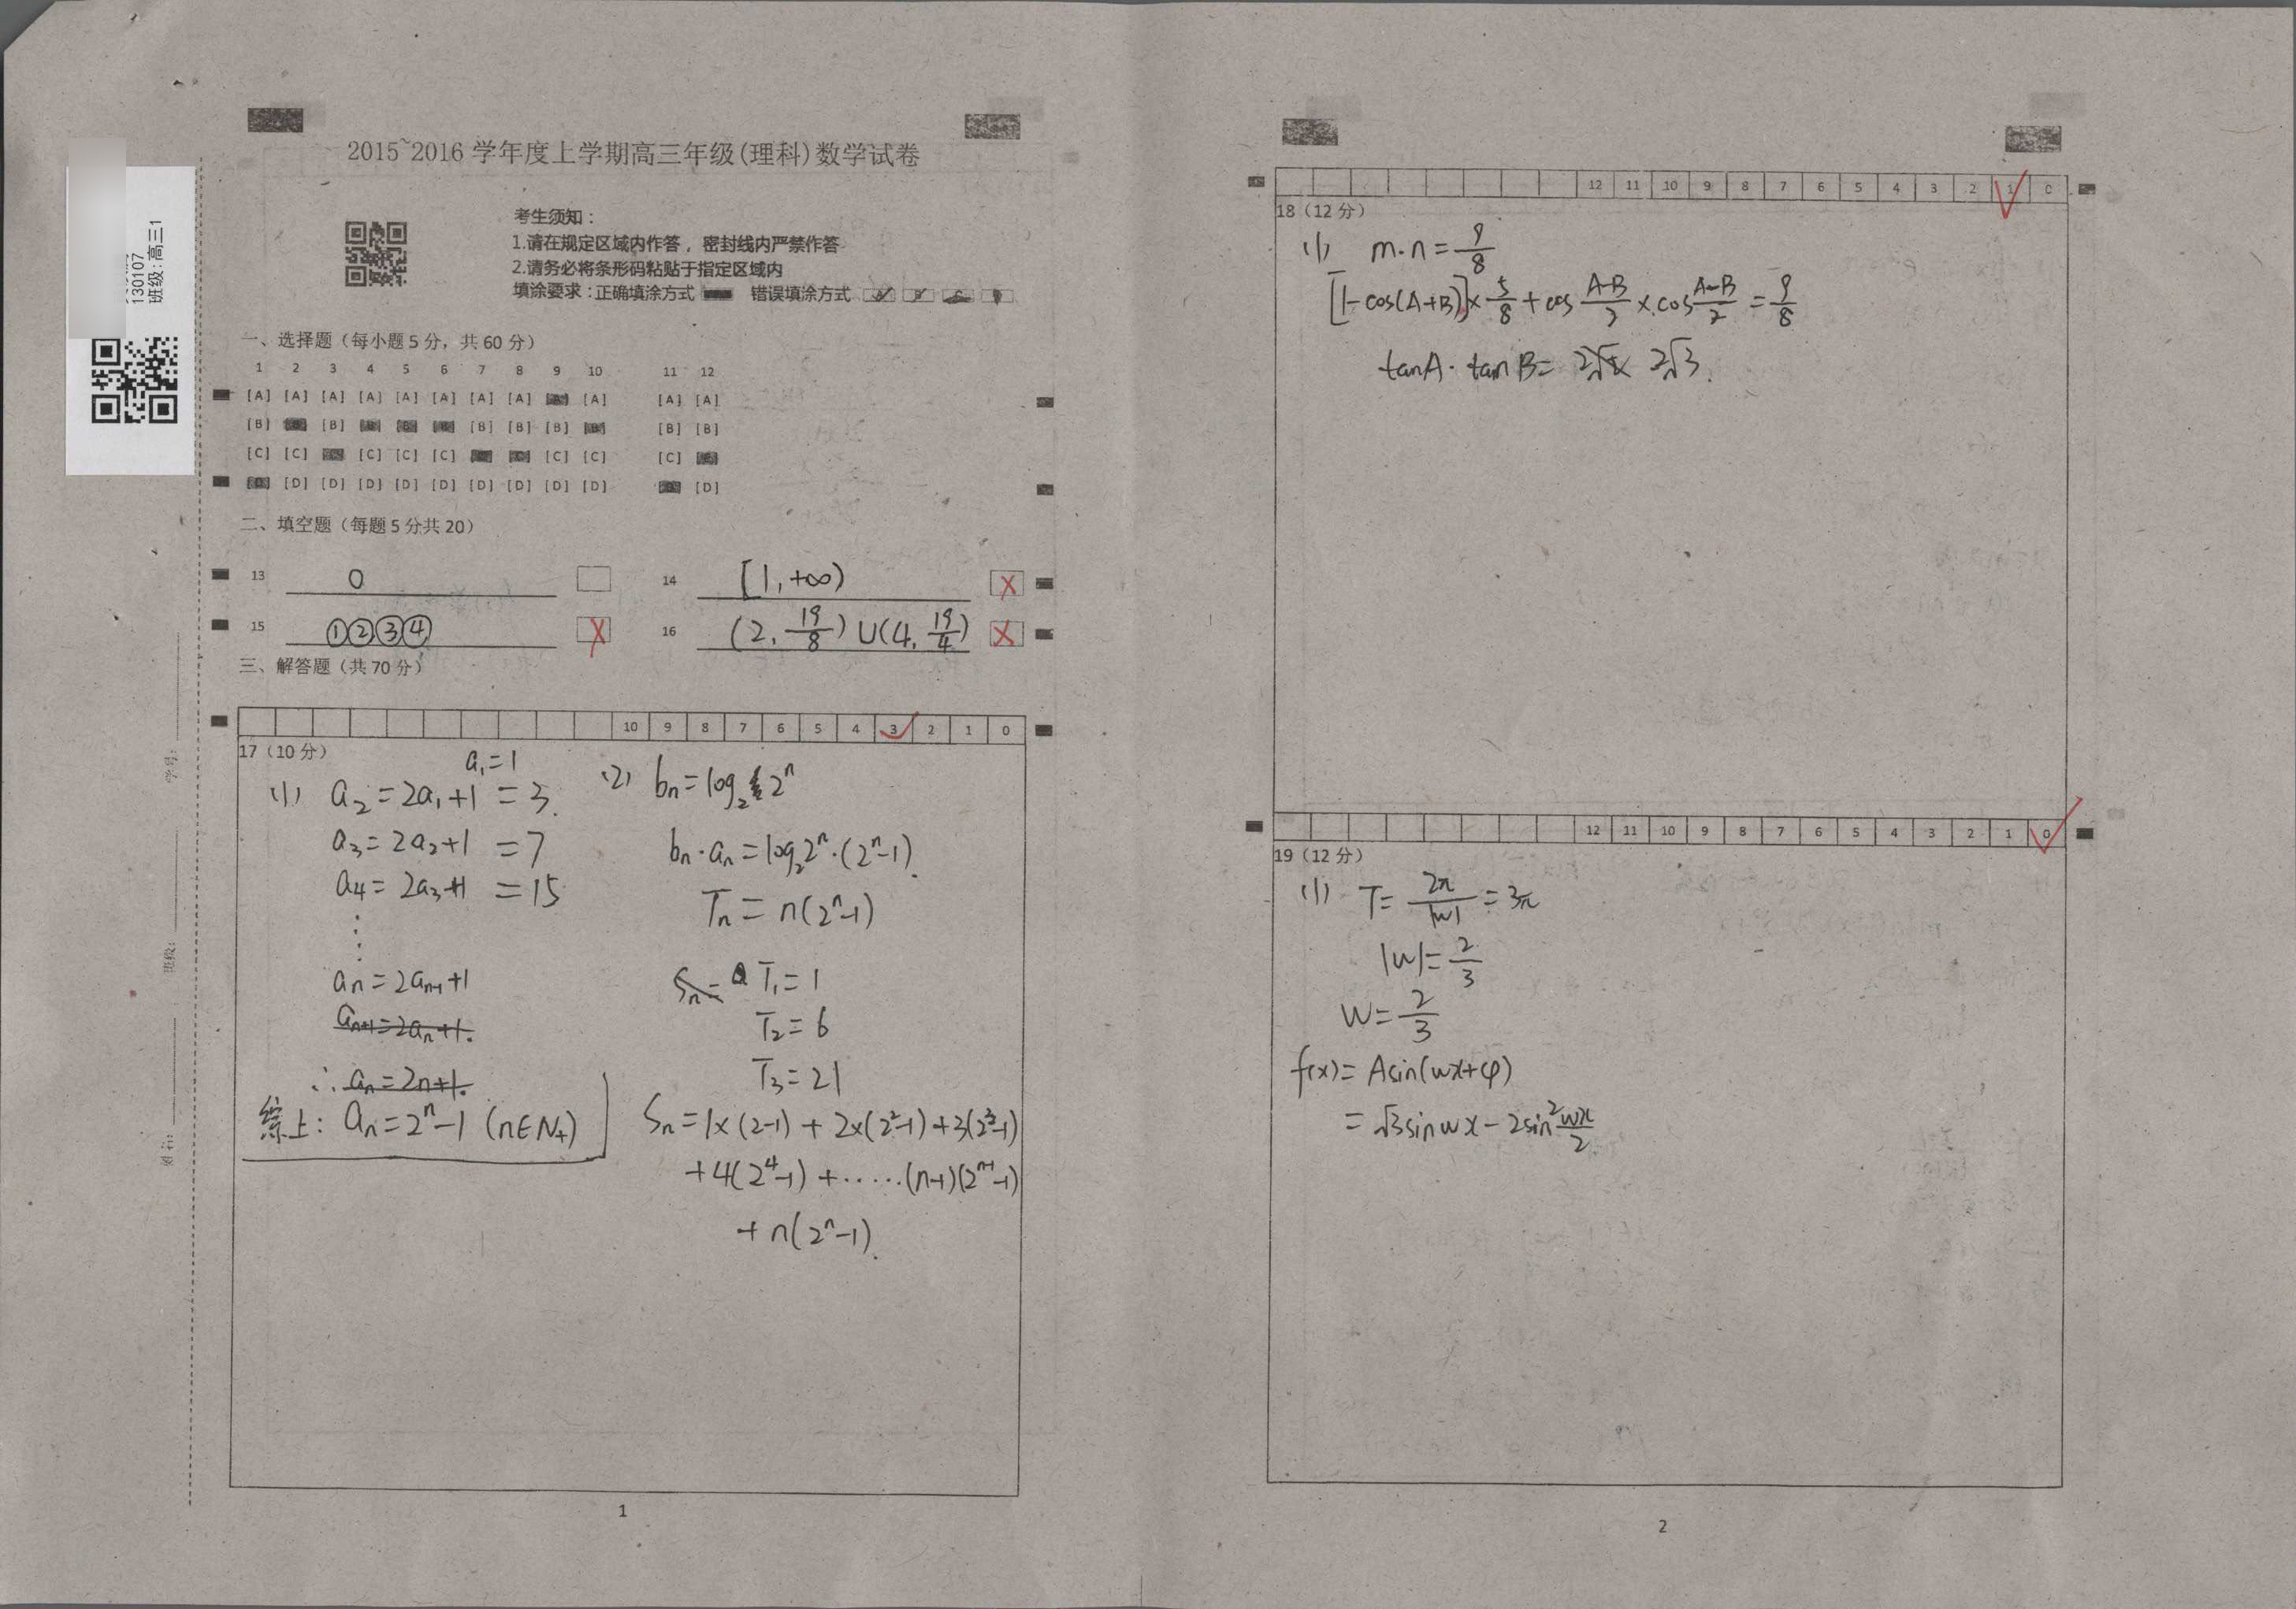 130107
班级:高三1
2015~2016 学年度上学期高三年级(理科)数学试卷
考生须知:
1.请在规定区域内作答，密封线内严禁作答
2.请务必将条形码粘贴于指定区域内
填涂要求:正确填涂方式 错误填涂方式
一、选择题（每小题 5 分，共 60 分）
1 2 3 4 5 6 7 8 9 10 11 12
[A] [A] [A] [A] [A] [A] [A] [A] [A] [A] [A]
[B] [B] [B] [B] [B] [B] [B]
[C] [C] [C] [C] [C] [C] [C] [C]
[D] [D] [D] [D] [D] [D] [D] [D] [D] [D]
二、填空题（每题 5 分共 20）
13 0
14 [1,+∞) X
15 ①②③④ X
16 (2, 19/8)∪(4, 19/4) X
三、解答题（共 70 分）
10 9 8 7 6 5 4 3 2 1 0
17（10 分）
a₁=1
(1) a₂=2a₁+1=3.
a₃=2a₂+1=7
a₄=2a₃+1=15
⋮
aₙ=2aₙ₋₁+1
aₙ₊₁=2aₙ+1.
∴aₙ=2n+1.
综上: aₙ=2ⁿ-1 (n∈N₊)
(2) bₙ=log₂2ⁿ
bₙ·aₙ=log₂2ⁿ·(2ⁿ-1).
Tₙ=n(2ⁿ-1)
Sₙ= T₁=1
T₂=6
T₃=21
Sₙ=1×(2-1)+2×(2²-1)+3(2³-1)
+4(2⁴-1)+······(n-1)(2ⁿ⁻¹-1)
+n(2ⁿ-1).
学号:
班级:
姓名:
1
12 11 10 9 8 7 6 5 4 3 2 1 0
18（12 分）
(1) m·n=9/8
[1-cos(A+B)]×5/8+cos (A-B)/2 ×cos (A-B)/2 =9/8
tanA·tanB= 2√3.
12 11 10 9 8 7 6 5 4 3 2 1 0
19（12 分）
(1) T=2π/|w|=3π
|w|=2/3
w=2/3
f(x)=Asin(wx+φ)
=√3sinwx-2sin² wx/2
2